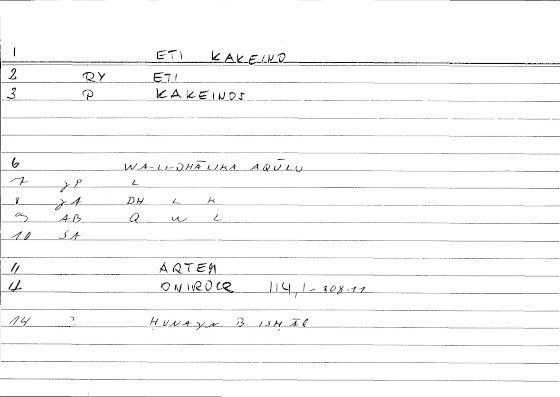 1 ETI KAKEINO
2 RY ETI
3 P KAKEINOS
6 WA-LI-DHĀLIKA AQŪLU
7 γP L
8 γA DH L K
9 AB Q W L
10 SA
11 ARTEM
12 ONIROCR 114,1-208.11
14 ? HUNAYN B ISHĀQ